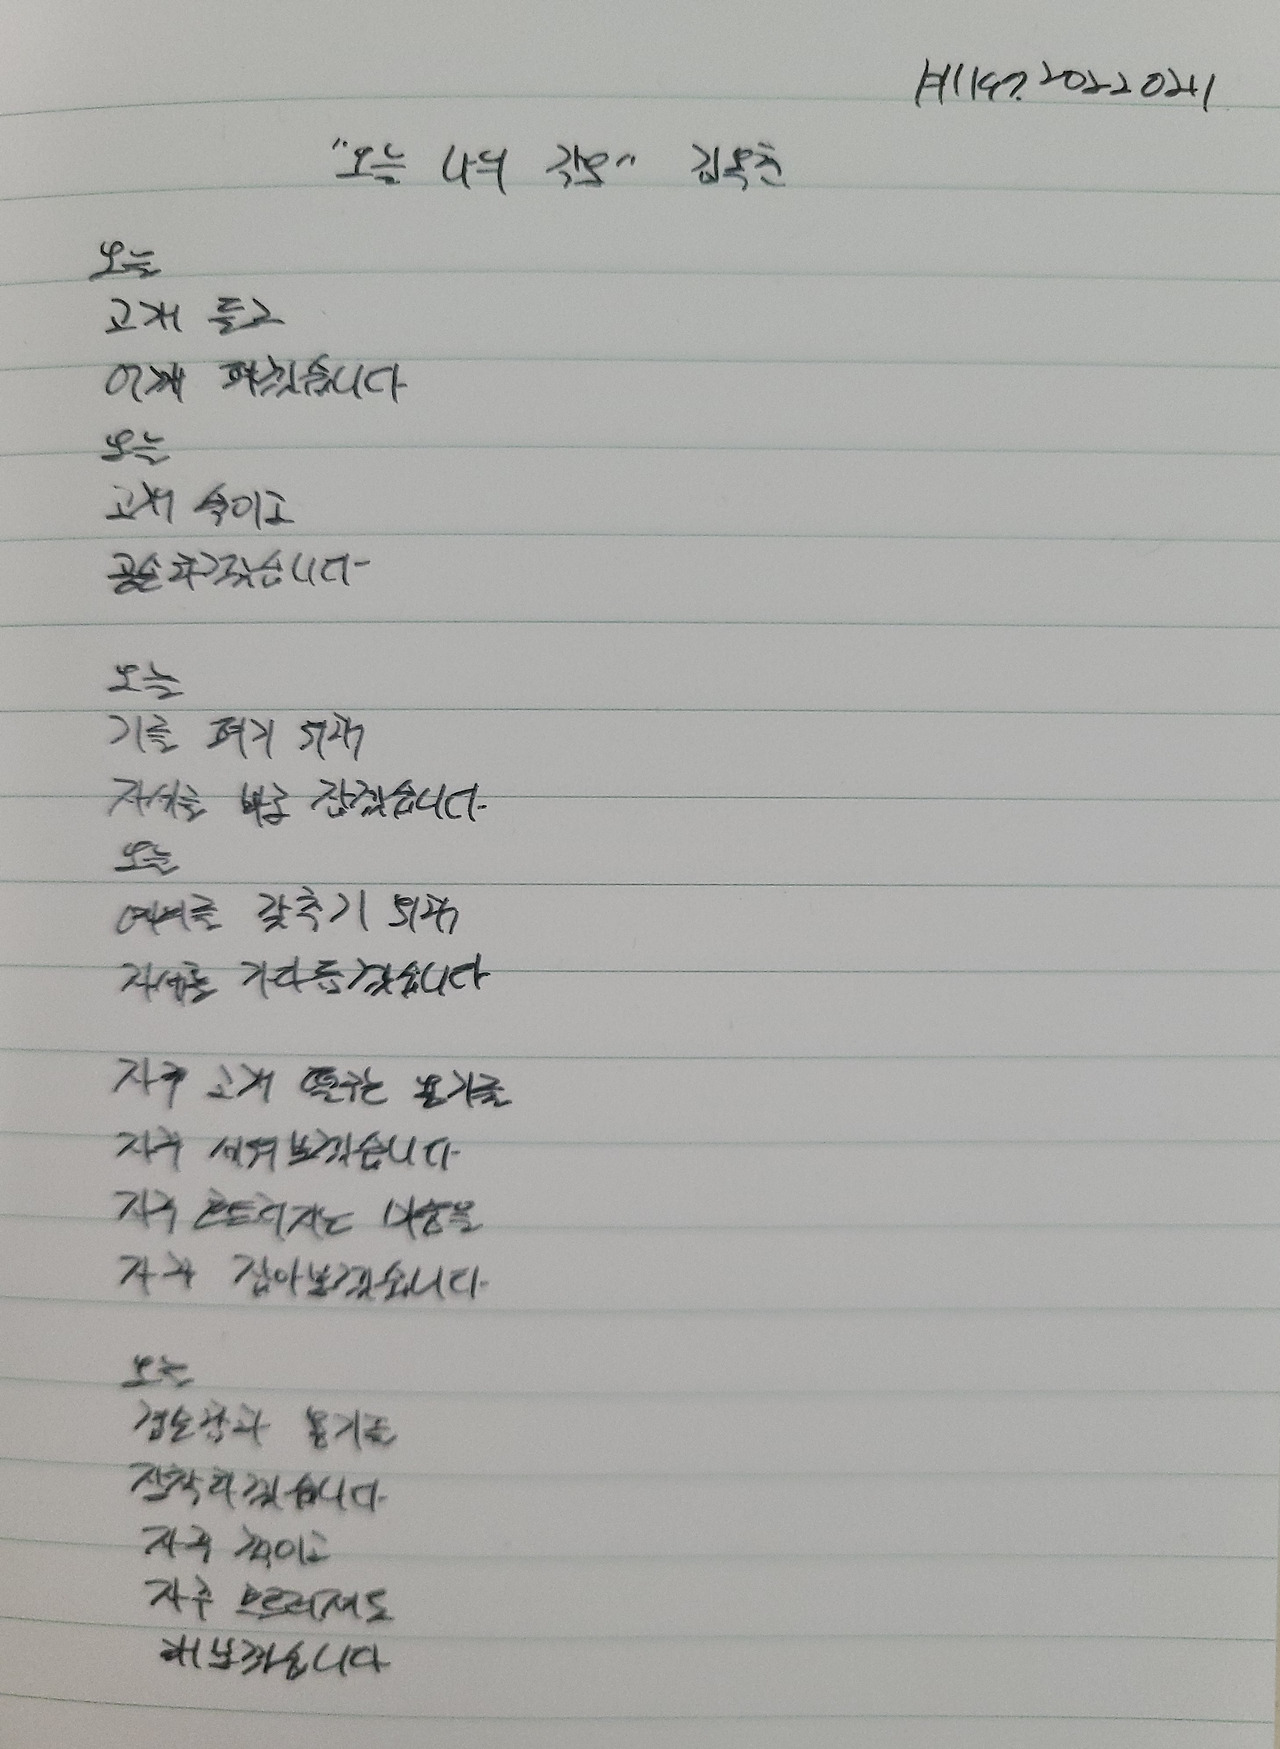 20220211
"오늘 나의 각오" 김옥춘
오늘
고개 들고
어깨 펴겠습니다
오늘
고개 숙이고
공손하겠습니다
오늘
기를 펴기 위해
자세를 바로 잡겠습니다
오늘
예의를 갖추기 위해
자세를 가다듬겠습니다
자주 고개 떨구는 용기를
자주 세워보겠습니다
자주 흐트러지는 마음을
자주 잡아보겠습니다
오늘
겸손함과 용기를
장착하겠습니다
자주 꺾이고
자주 흐트러져도
해보겠습니다